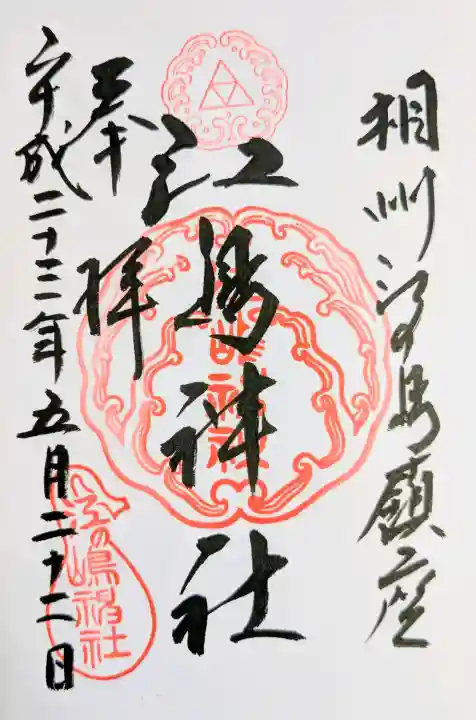 相州江の島鎮座
江島神社
奉拝
平成二十三年五月二十二日
江嶋神社
江の嶋福社